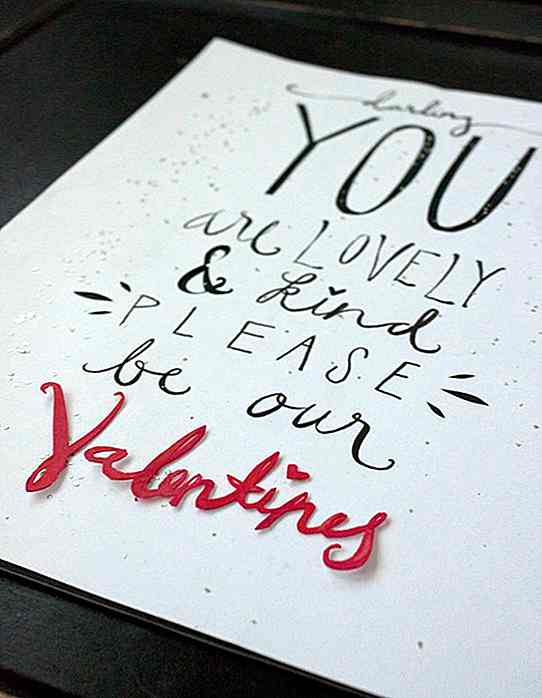 darling
YOU
are LOVELY
& kind
PLEASE
be our
Valentines